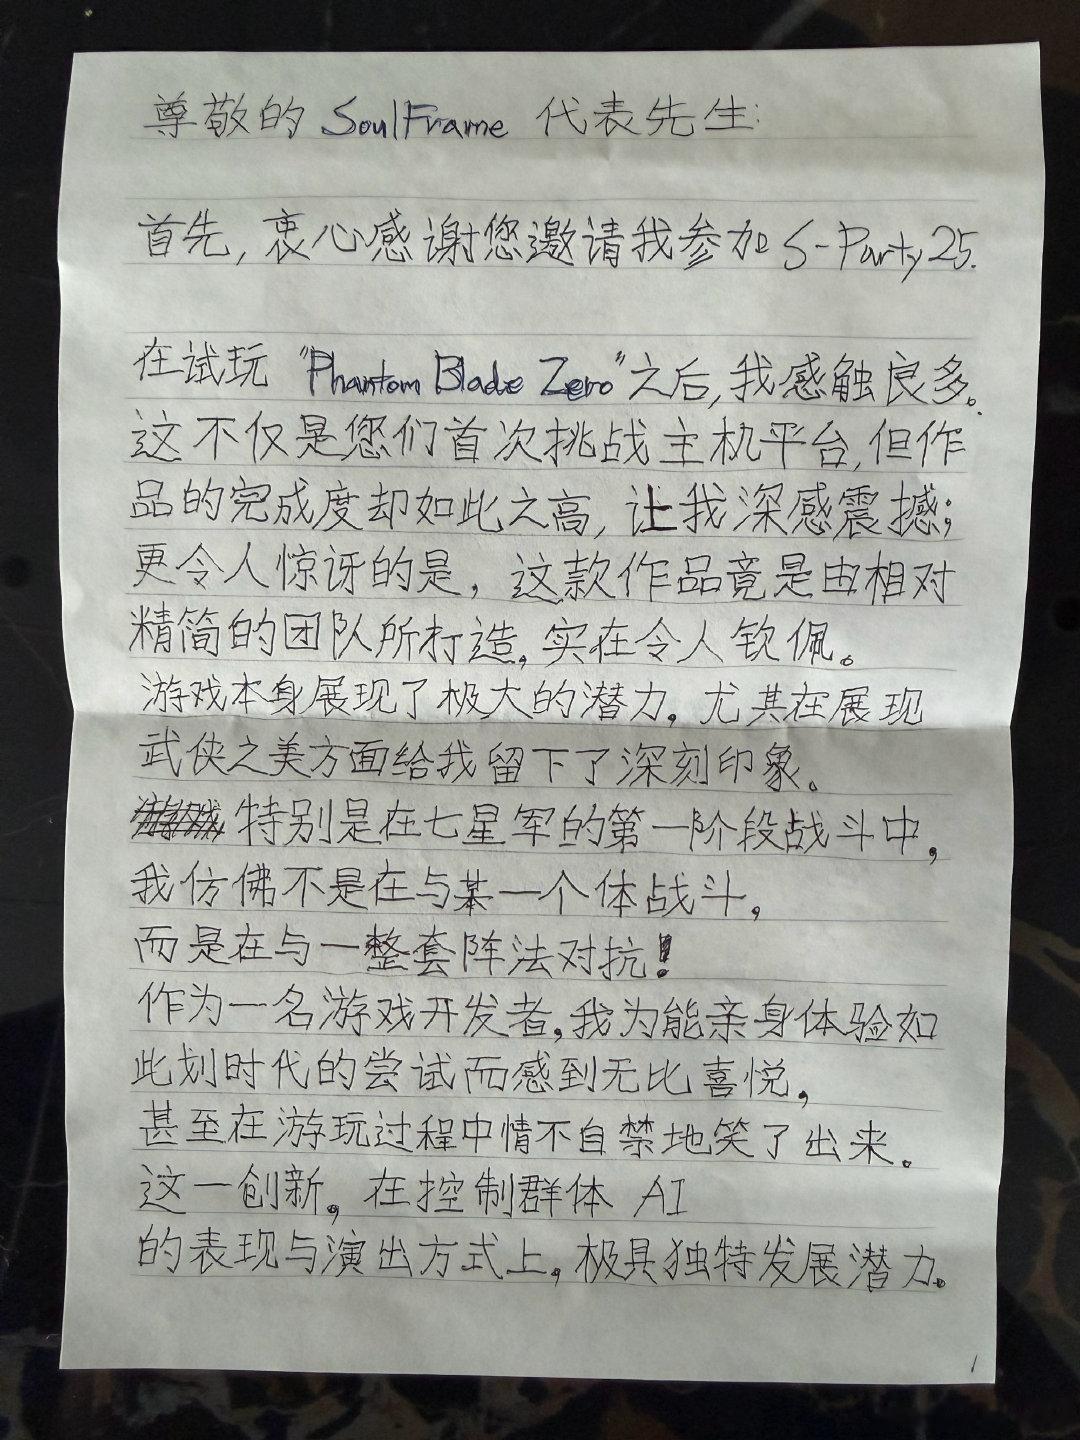 尊敬的 SoulFrame 代表先生:
首先,衷心感谢您邀请我参加 S-Party 25.
在试玩 "Phantom Blade Zero"之后,我感触良多。
这不仅是您们首次挑战主机平台,但作
品的完成度却如此之高,让我深感震撼;
更令人惊讶的是,这款作品竟是由相对
精简的团队所打造,实在令人钦佩。
游戏本身展现了极大的潜力,尤其在展现
武侠之美方面给我留下了深刻印象。
特别是在七星军的第一阶段战斗中,
我仿佛不是在与某一个体战斗,
而是在与一整套阵法对抗!
作为一名游戏开发者,我为能亲身体验如
此划时代的尝试而感到无比喜悦,
甚至在游玩过程中情不自禁地笑了出来。
这一创新,在控制群体 AI
的表现与演出方式上,极具独特发展潜力。
1